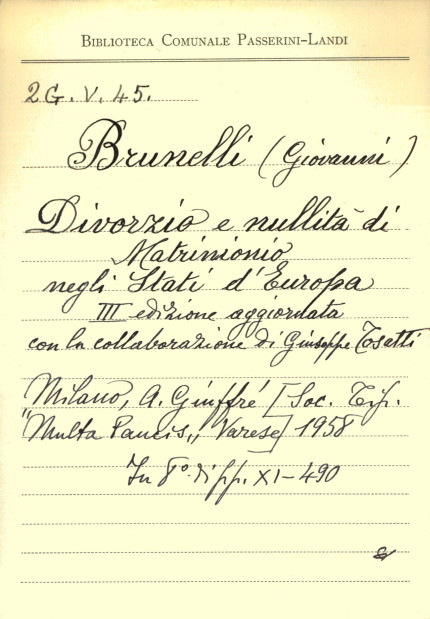 BIBLIOTECA COMUNALE PASSERINI-LANDI
2G. V. 45.
Brunelli (Giovanni)
Divorzio e nullità di
Matrimonio
negli Stati d'Europa
III edizione aggiornata
con la collaborazione di Giuseppe Tosatti
Milano, A. Giuffré [Soc. Tip.
"Multa Paucis„ Varese] 1958
In 8° di pp. XI-490